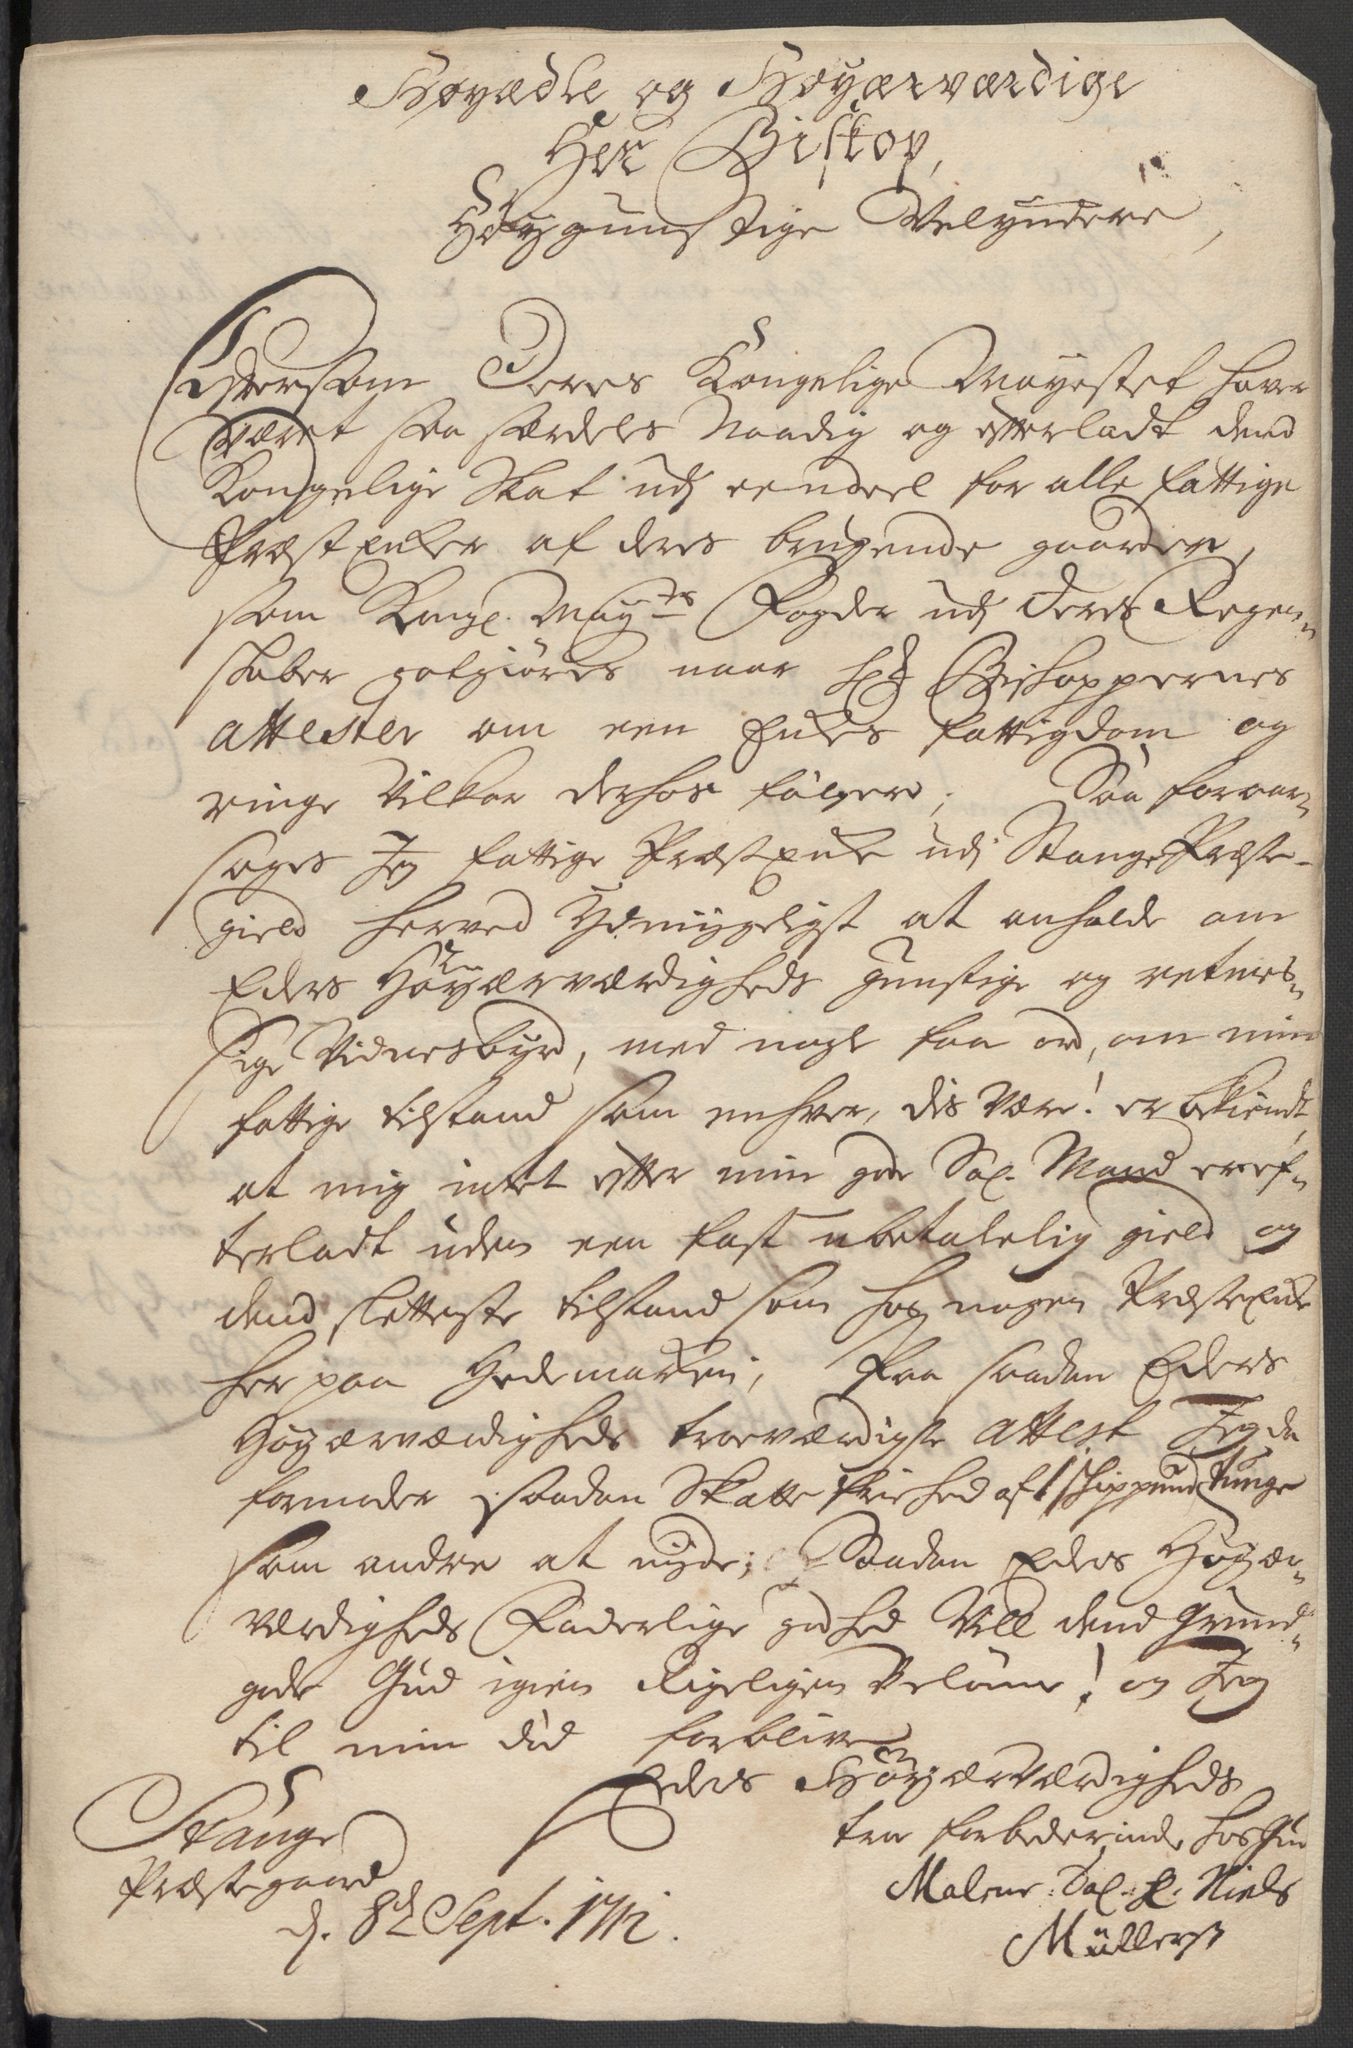 Høyædle og Høyærværdige
Her Biskop,
Høygunstige Velyndere,
Efftersom Deres Kongelige Mayestet haver
været saa særdeles Naadig og efterladt dend
Kongelige Skat udj eendeel for alle fattige
Præst Enker af deres brugende gaarder,
som Kongl. Mayts Fogder udj deres Regen-
skaber gotgiøres naar Hr Biskoppernes
attester om een Enkes fattigdom og
ringe Vilkor derhos følger; Saa foraar-
sages Jeg fattige Præst Enke udj Stange Præste-
gield herved Ydmygeligst at anholde om
Eders Høyærværdigheds gunstige og retmes-
sige Vidnesbyrd, med nogle faa ord, om min
fattige tilstand som enhver, dis være! er bekiendt,
at mig intet efter min gode Sal. Mand er ef-
terladt uden een fast ubetalelig gield og
dend sletteste tilstand som hos nogen Præst Enke
her paa Hedemarken; Paa saadan Eders
Høyærværdigheds troeværdigste attest Jeg da
formoder saadan Skatte frihed af 1 schippund tunge
som andre at nyde; Saadan Eders Høyær-
værdigheds Faderlige godhed Vill dend Grund-
gode Gud igien Rigeligen beløne! og Jeg
til min død forbliver
Eders Høyærværdigheds
troe forbederinde hos Gud
Malene Sal. Hr. Niels
Müllers
Stange
Præstegaard
d. 8de Sept. 1712.